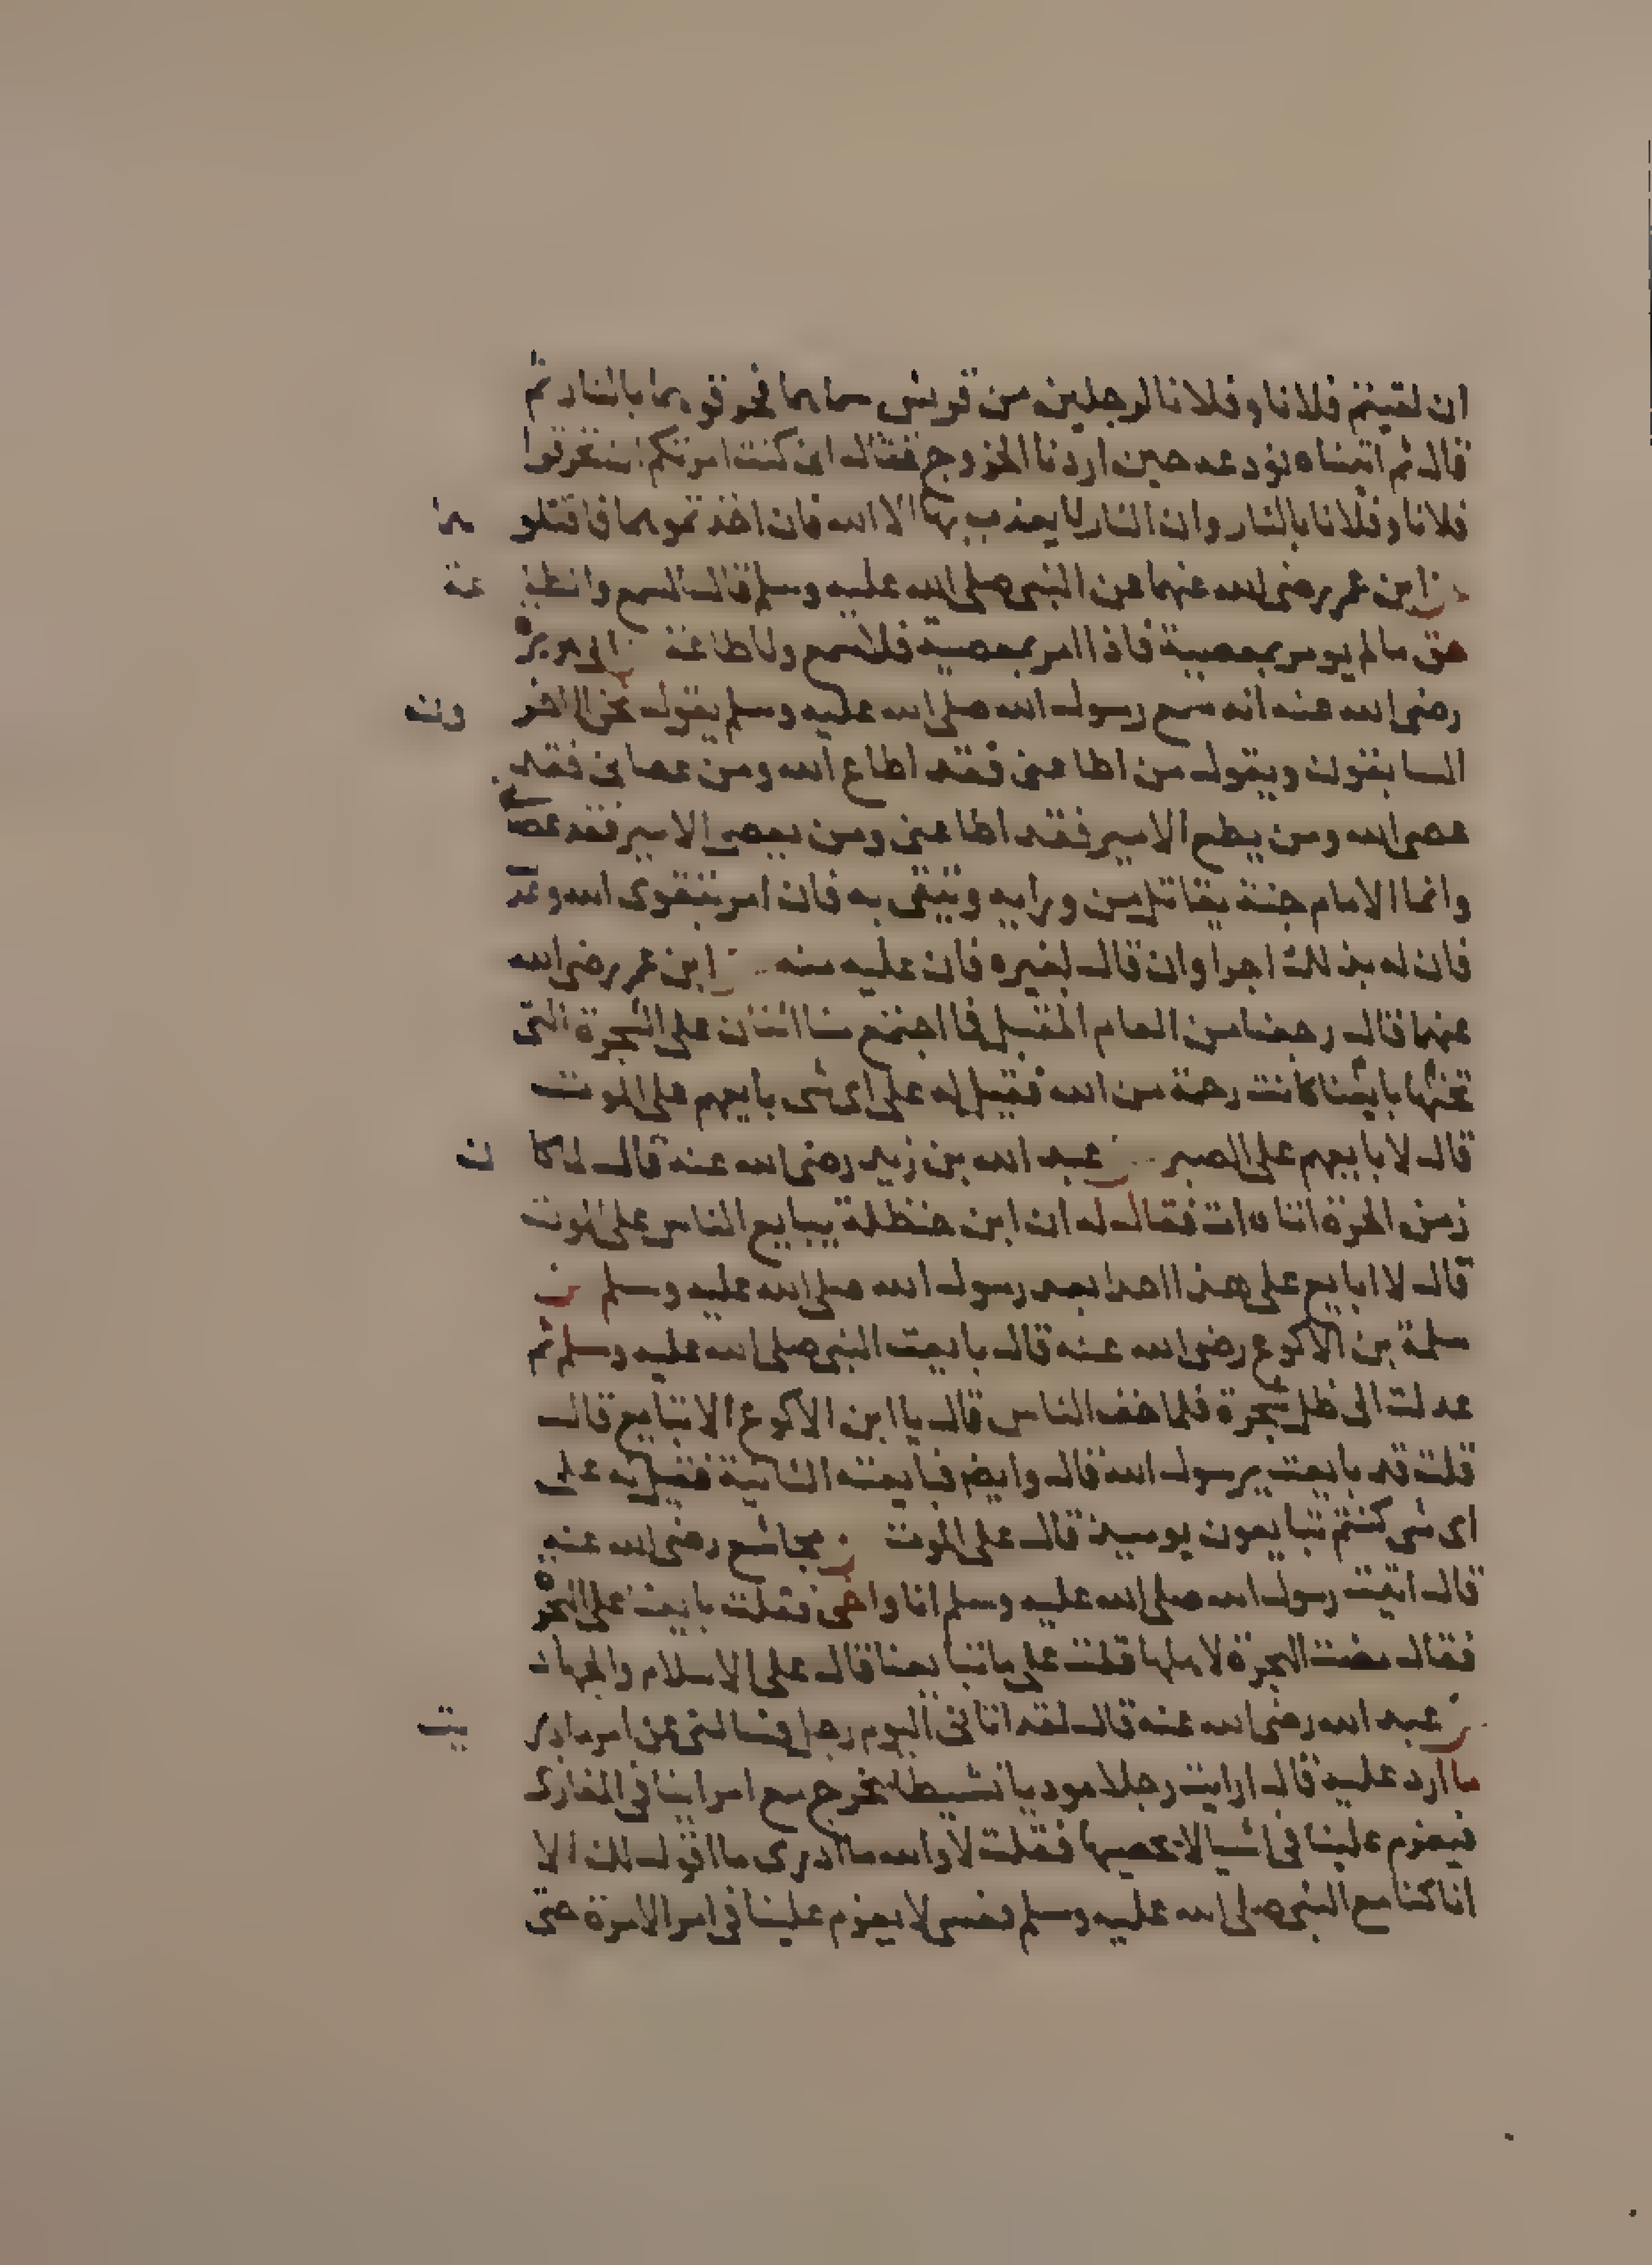 ان لقيتم فلانا وفلانا لرجلين من قريش سماهما فحرقوهما بالنار ثم
قال ثم اتيناه نودعه حين اردنا الخروج فقال انى كنت امرتكم ان تحرقوا
فلانا وفلانا بالنار وان النار لا يعذب بها الا الله فان اخذتموهما فاقتلوهما
ابن عمر رضى الله عنهما عن النبى صلى الله عليه وسلم قال السمع والطاعة
حق مالم يومر بمعصية فاذا امر بمعصية فلا سمع ولا طاعة ابى هريرة
رضى الله عنه انه سمع رسول الله صلى الله عليه وسلم يقول نحن الاخرون
السابقون ويقول من اطاعنى فقد اطاع الله ومن عصانى فقد
عصى الله ومن يطع الامير فقد اطاعنى ومن يعص الامير فقد عصانى
وانما الامام جنة يقاتل من ورايه ويتقى به فان امر بتقوى الله وعدل
فان له بذلك اجرا وان قال بغيره فان عليه منه ابن عمر رضى الله
عنهما قال رجعنا من العام المقبل فما اجتمع منا اثنان على الشجرة التى
تحتها بايعنا كانت رحمة من الله فقيل له على اى شى بايعهم على الموت
قال لا بايعهم على الصبر عبد الله بن زيد رضى الله عنه قال لما كان
زمن الحرة اتاه ات فقال له ان ابن حنظلة يبايع الناس على الموت
قال لا ابايع على هذا احدا بعد رسول الله صلى الله عليه وسلم
سلمة بن الاكوع رضى الله عنه قال بايعت النبى صلى الله عليه وسلم ثم
عدلت الى ظل شجرة فلما خف الناس قال يا ابن الاكوع الا تبايع قال
قلت قد بايعت يرسول الله قال وايضا فبايعته الثانية فقيل له على
اى شى كنتم تبايعون يوميذ قال على الموت مجاشع رضى الله عنه
قال اتيت رسول الله صلى الله عليه وسلم انا واخى فقلت بايعنا على الهجرة
فقال مضت الهجرة لاهلها قلت على ما تبايعنا قال على الاسلام والجهاد
عبد الله رضى الله عنه قال لقد اتانى اليوم رجل فسالنى عن امر ما دريت
ما ارد عليه قال ارايت رجلا موديا نشيطا يخرج مع امراينا فى المغازى
فيعزم علينا فى اشيا لا نحصيها فقلت لا والله ما ادرى ما اقول لك الا
انا كنا مع النبى صلى الله عليه وسلم فعسى لا يعزم علينا فى امر الا مرة حتى